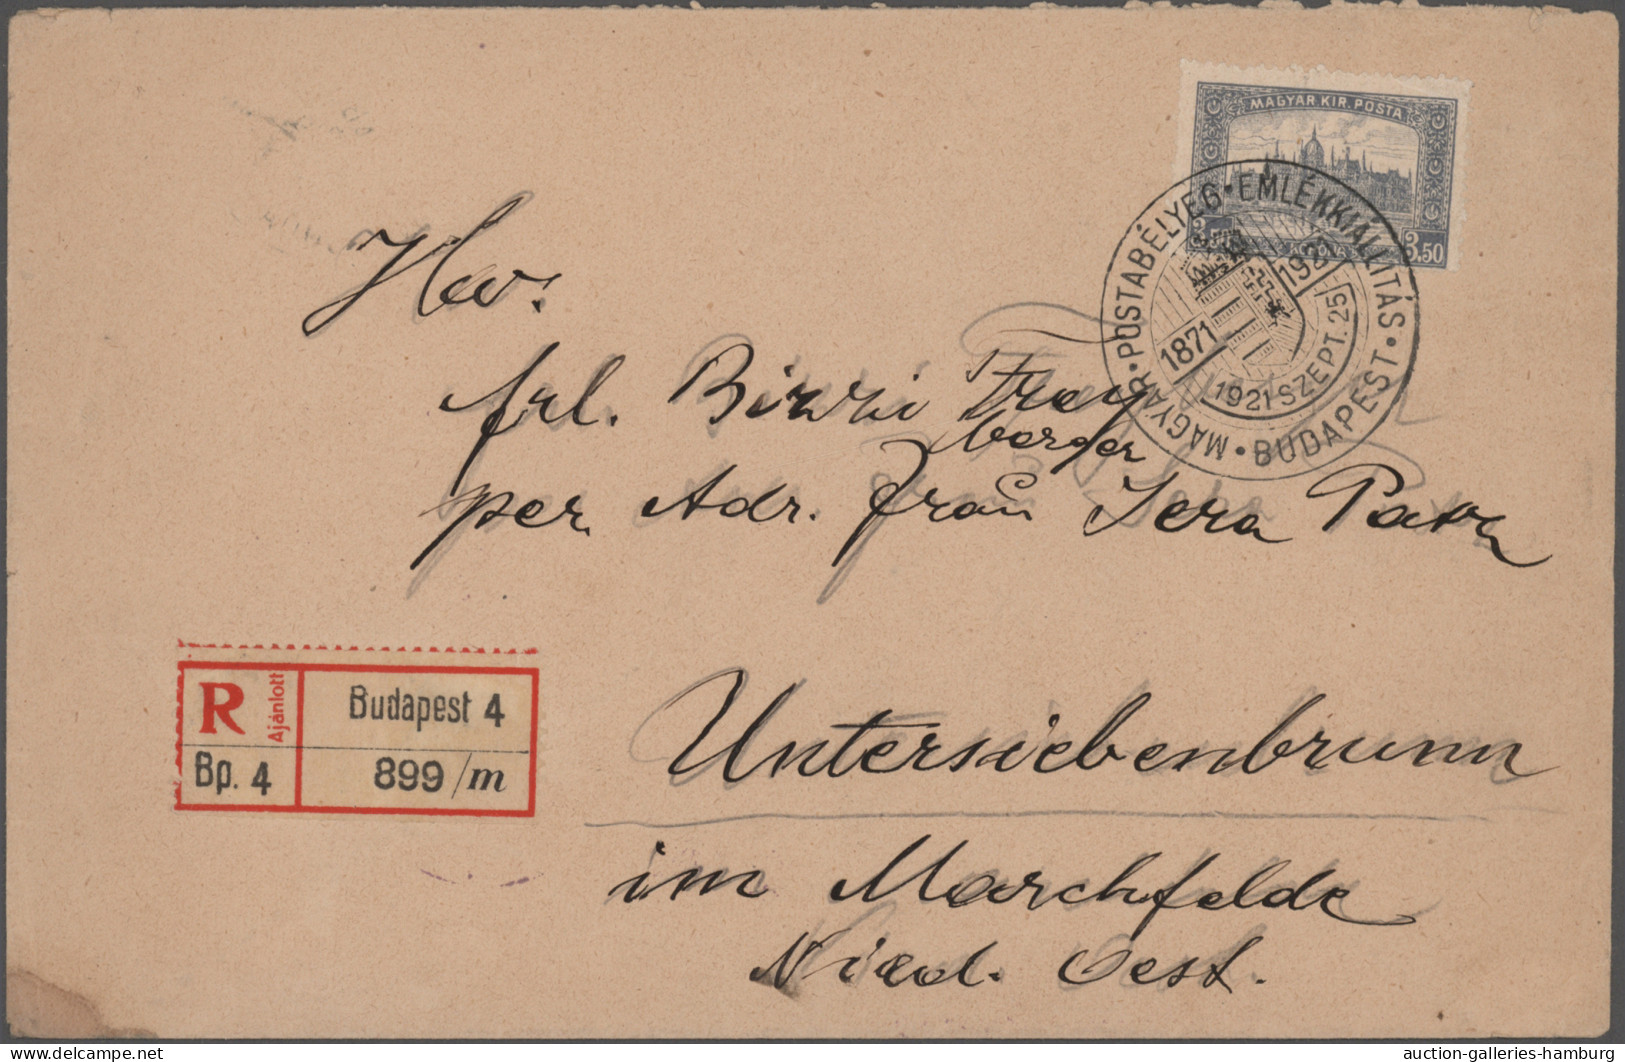 MAGYAR KIR. POSTA
KORONA 3.50
MAGYAR • POSTABÉLYEG • EMLÉKKIÁLLITÁS • BUDAPEST •
1871
1921
1921 SZEPT. 25
frl. Bizzi Frey
berger
per Adr. Frau Sera
Untersiebenbrunn
im Marchfelde
Nied. Oest.
R Ajánlott Budapest 4
Bp. 4 899/m
delcampe.net
auction-galleries-hamburg